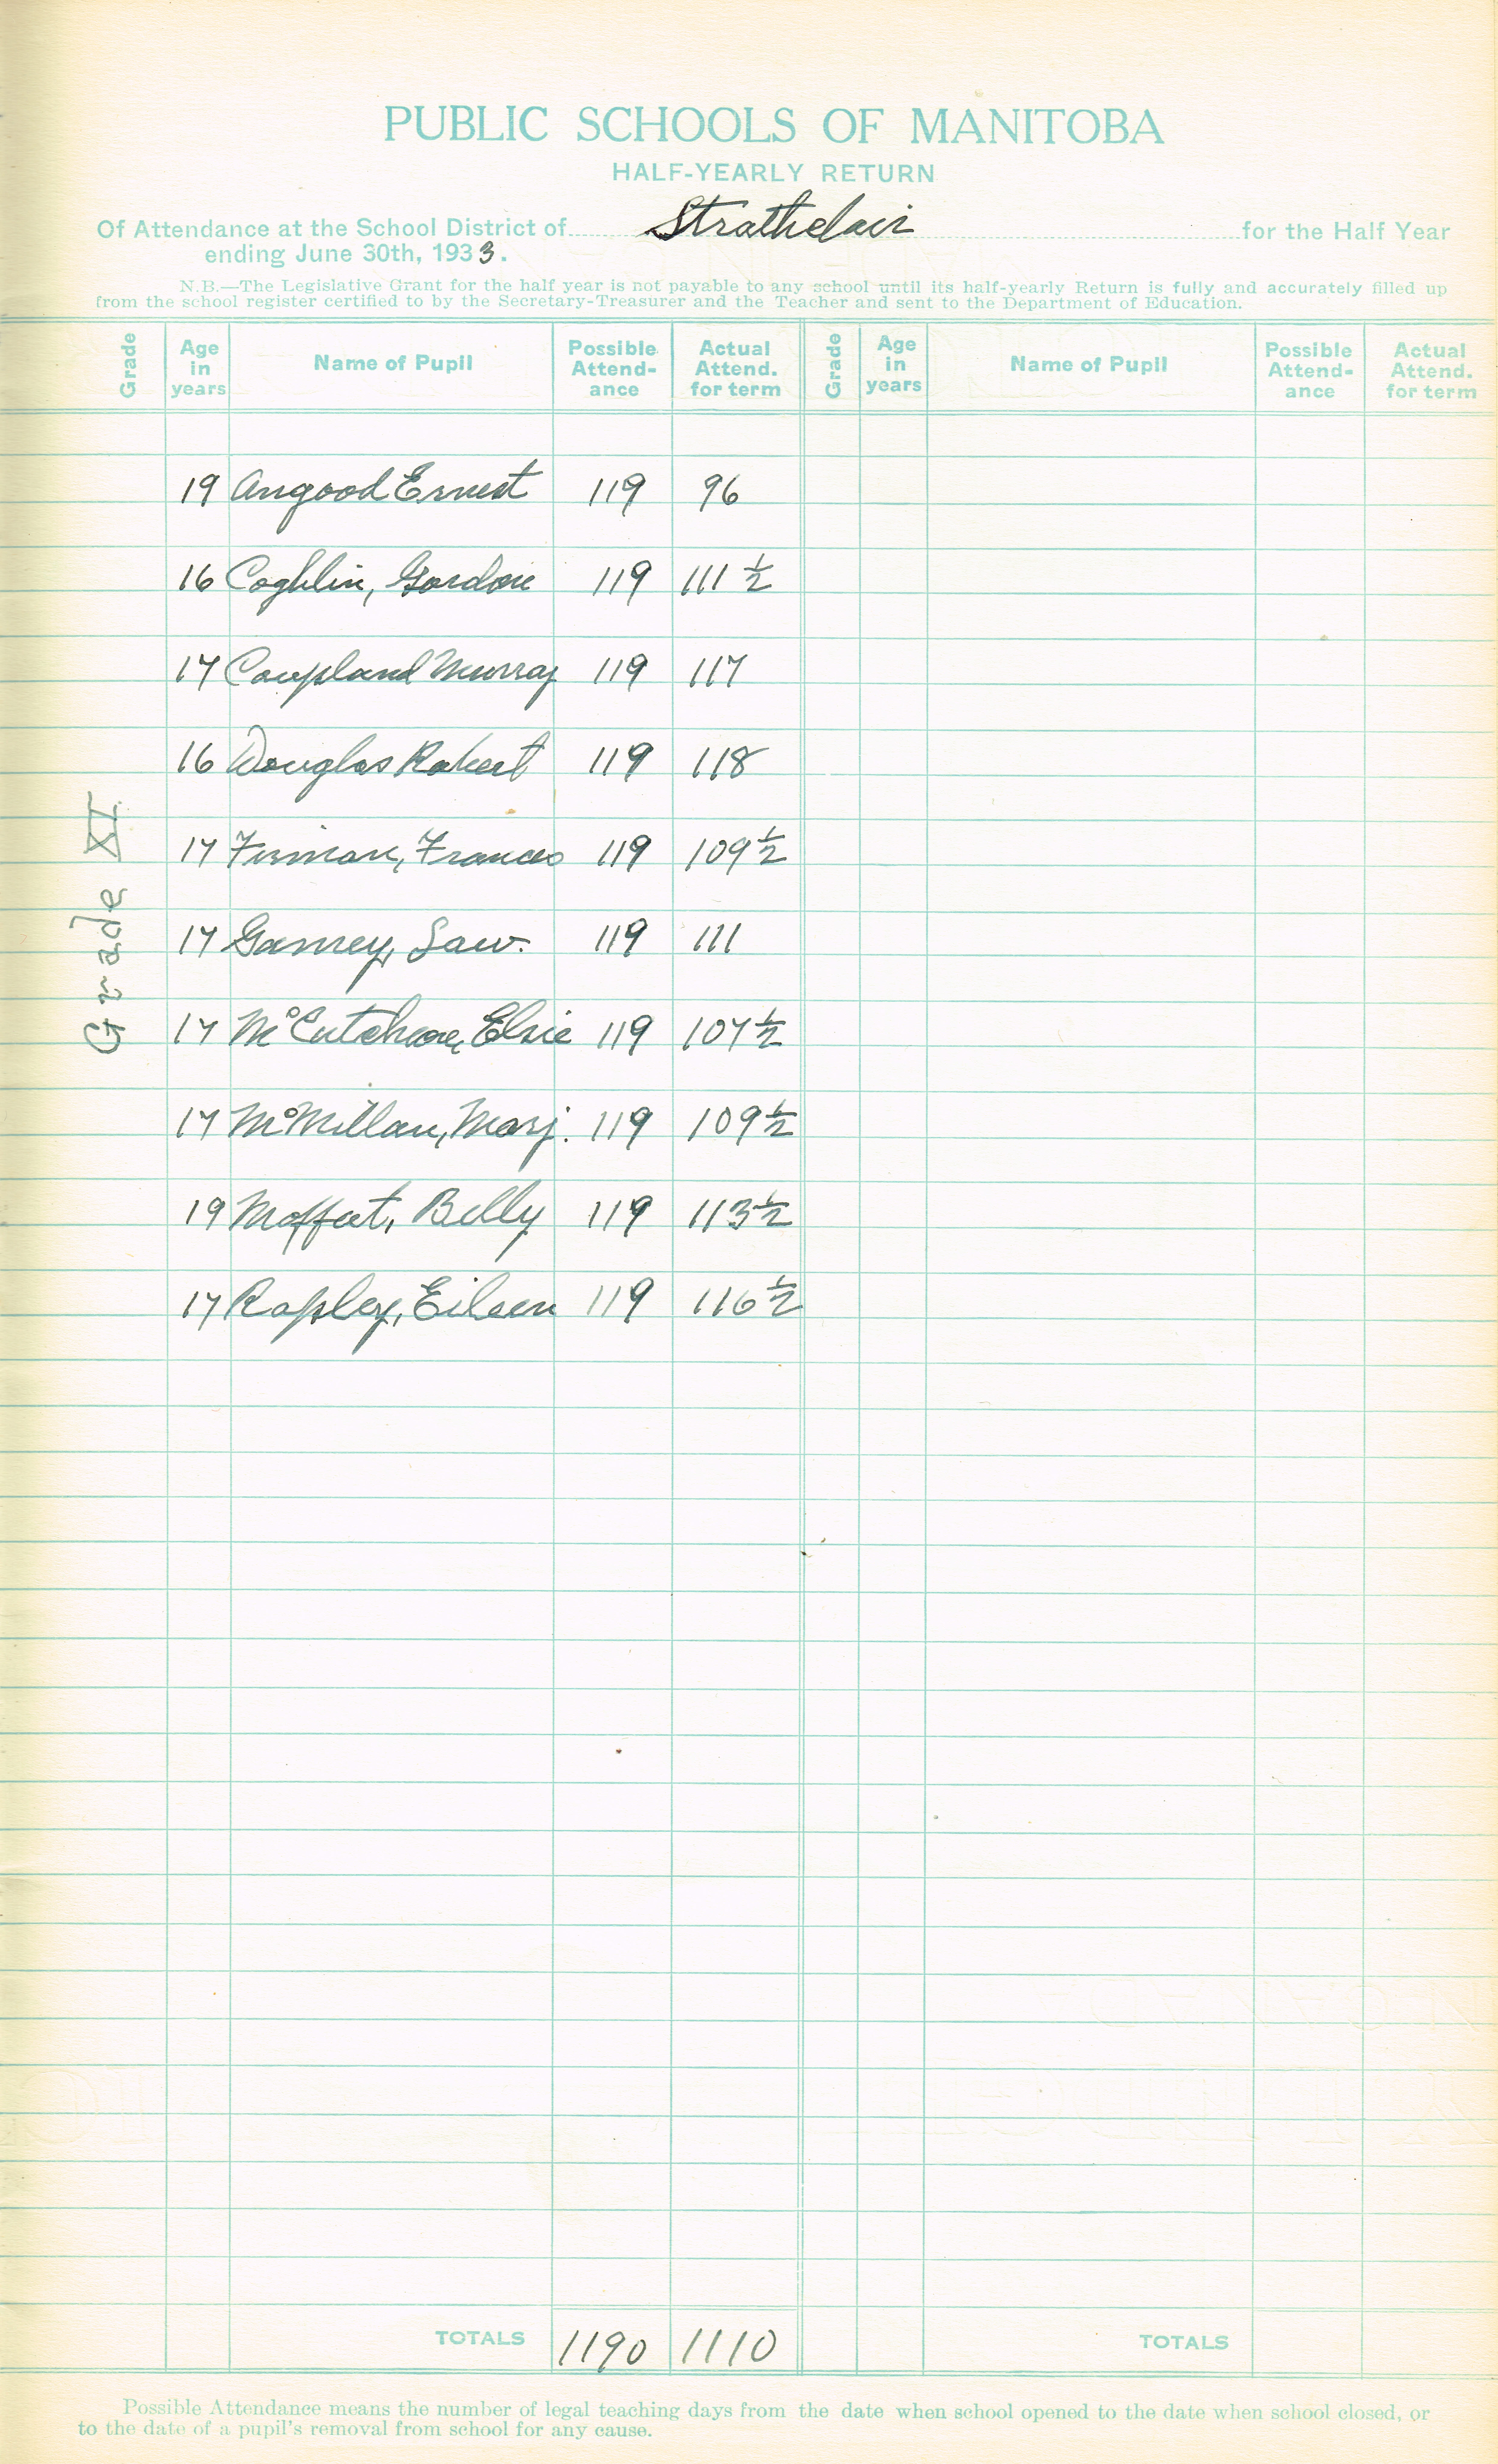 PUBLIC SCHOOLS OF MANITOBA
HALF-YEARLY RETURN
Of Attendance at the School District of Strathclair for the Half Year
ending June 30th, 1933.
N.B.—The Legislative Grant for the half year is not payable to any school until its half-yearly Return is fully and accurately filled up
from the school register certified to by the Secretary-Treasurer and the Teacher and sent to the Department of Education.
Grade Age in years Name of Pupil Possible Attend-ance Actual Attend. for term Grade Age in years Name of Pupil Possible Attend-ance Actual Attend. for term
Grade XI
19 Angood Ernest 119 96
16 Coghlin, Gordon 119 111 1/2
17 Coupland Murray 119 117
16 Douglas Robert 119 118
17 Firman, Frances 119 109 1/2
17 Gamey, Law. 119 111
17 McCutcheon, Elsie 119 107 1/2
17 McMillan, Marj. 119 109 1/2
19 Moffat, Billy 119 113 1/2
17 Rapley, Eileen 119 116 1/2
TOTALS 1190 1110 TOTALS
Possible Attendance means the number of legal teaching days from the date when school opened to the date when school closed, or
to the date of a pupil's removal from school for any cause.